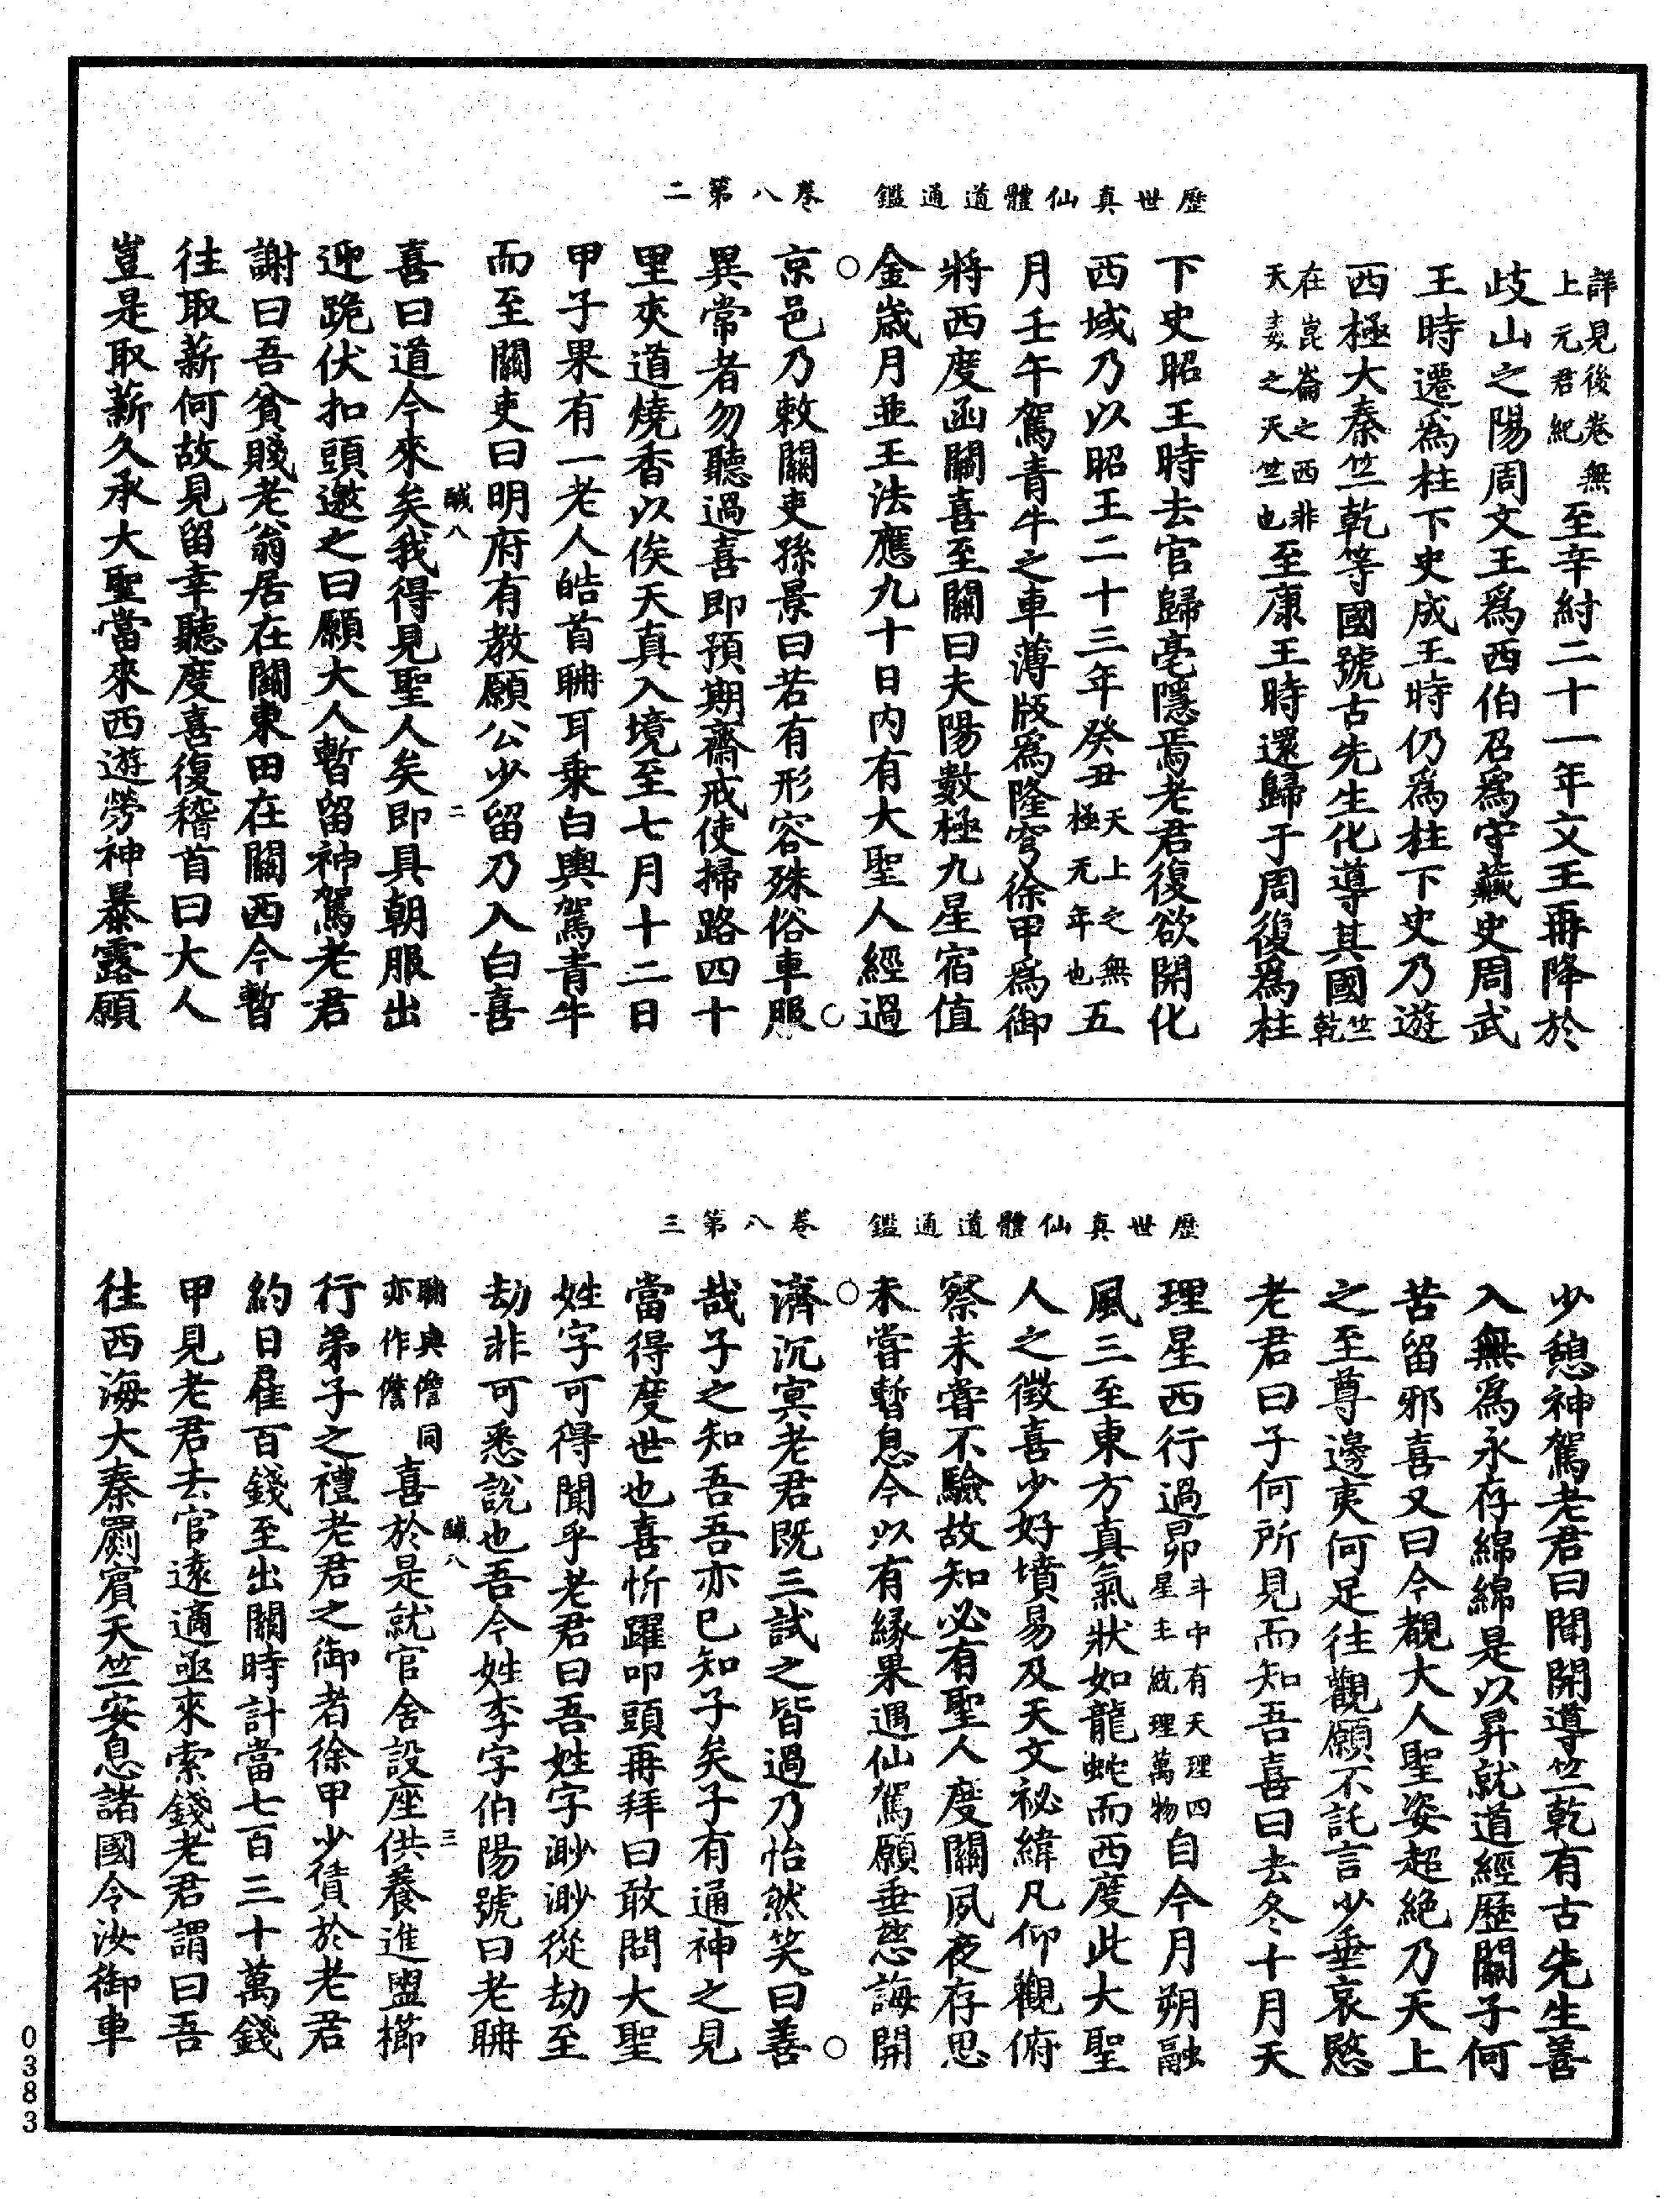 歷世真仙體道通鑑　卷八第二
詳見後卷無上元君紀至辛紂二十一年文王再降於
歧山之陽周文王爲西伯召爲守藏史周武
王時遷爲柱下史成王時仍爲柱下史乃遊
西極大秦竺乾等國號古先生化導其國竺乾
在崑崙之西非天竺之天竺也至康王時還歸于周復爲柱
下史昭王時去官歸亳隱焉老君復欲開化
西域乃以昭王二十三年癸丑天上之無極元年也五
月壬午駕青牛之車薄版爲隆穹徐甲爲御
將西度函關喜至關曰夫陽數極九星宿值
金歲月並王法應九十日內有大聖人經過
京邑乃敕關吏孫景曰若有形容殊俗車服
異常者勿聽過喜即預期齋戒使掃路四十
里夾道燒香以俟天真入境至七月十二日
甲子果有一老人皓首聃耳乘白輿駕青牛
而至關吏曰明府有教願公少留乃入白喜
鹹八　二
喜曰道今來矣我得見聖人矣即具朝服出
迎跪伏扣頭邀之曰願大人暫留神駕老君
謝曰吾貧賤老翁居在關東田在關西今暫
往取薪何故見留幸聽度喜復稽首曰大人
豈是取薪久承大聖當來西遊勞神暴露願
歷世真仙體道通鑑　卷八第三
少憩神駕老君曰聞開導竺乾有古先生善
入無爲永存綿綿是以昇就道經歷關子何
苦留邪喜又曰今覩大人聖姿超絕乃天上
之至尊邊夷何足往觀願不託言少垂哀愍
老君曰子何所見而知吾喜曰去冬十月天
理星西行過昴斗中有天理四星主統理萬物自今月朔融
風三至東方真氣狀如龍蛇而西度此大聖
人之徵喜少好墳易及天文祕緯凡仰觀俯
察未嘗不驗故知必有聖人度關夙夜存思
未嘗暫息今以有緣果遇仙駕願垂慈誨開
濟沉冥老君既三試之皆過乃怡然笑曰善
哉子之知吾吾亦已知子矣子有通神之見
當得度世也喜忻躍叩頭再拜曰敢問大聖
姓字可得聞乎老君曰吾姓字渺渺從劫至
劫非可悉說也吾今姓李字伯陽號曰老聃
鹹八　三
聃與儋同亦作儋喜於是就官舍設座供養進盥櫛
行弟子之禮老君之御者徐甲少債於老君
約日雇百錢至出關時計當七百三十萬錢
甲見老君去官遠適亟來索錢老君謂曰吾
往西海大秦罽賓天竺安息諸國令汝御車
0383